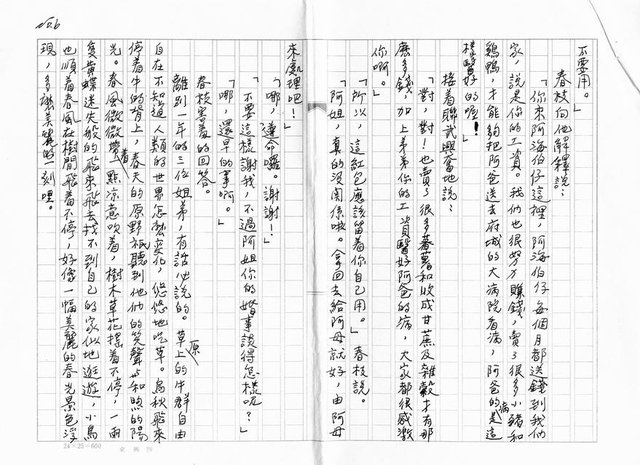 No.6
不要用。」
春枝向他解釋說：
「你來阿海伯仔這裡，阿海伯仔每個月都送錢到我們
家，說是你的工資。我們也很努力賺錢，賣了很多小豬和
雞鴨，才能夠把阿爸送去府城的大病院看病，阿爸的病是這
樣醫好的喔！」
接著聯武興奮地說：
「對，對！也賣了很多蕃薯和收成甘蔗及雜穀才有那
麼多錢，加上弟弟你的工資醫好阿爸的病，大家都很感激
你啊。」
「所以，這紅包應該留着你自己用。」春枝說。
「阿姐，真的沒關係啦。拿回去給阿母就好，由阿母
來處理吧！」
「哪，運命囉。謝謝！」
「不要這樣謝我，不過阿姐你的婚事談得怎樣呢？」
「哪，還早的事啊。」
春枝害羞的回答。
離別一年的三位姐弟，有談必說的。草原上的牛群自由
自在不知道人類的世界怎麼變化，悠悠地吃草。烏秋飛來
停着牛的背上，春天的原野祇聽到他們的笑聲与和煦的陽
光。春風微微帶着一點涼意吹着，樹木草花搖着不停，一兩
隻黃蝶迷失般的飛來飛去找不到自己的家似地逛遊，小鳥
也順着春風在樹間飛着不停，好像一幅美麗的春光景色浮
現，多讓美麗的一刻哩。
24×25=600